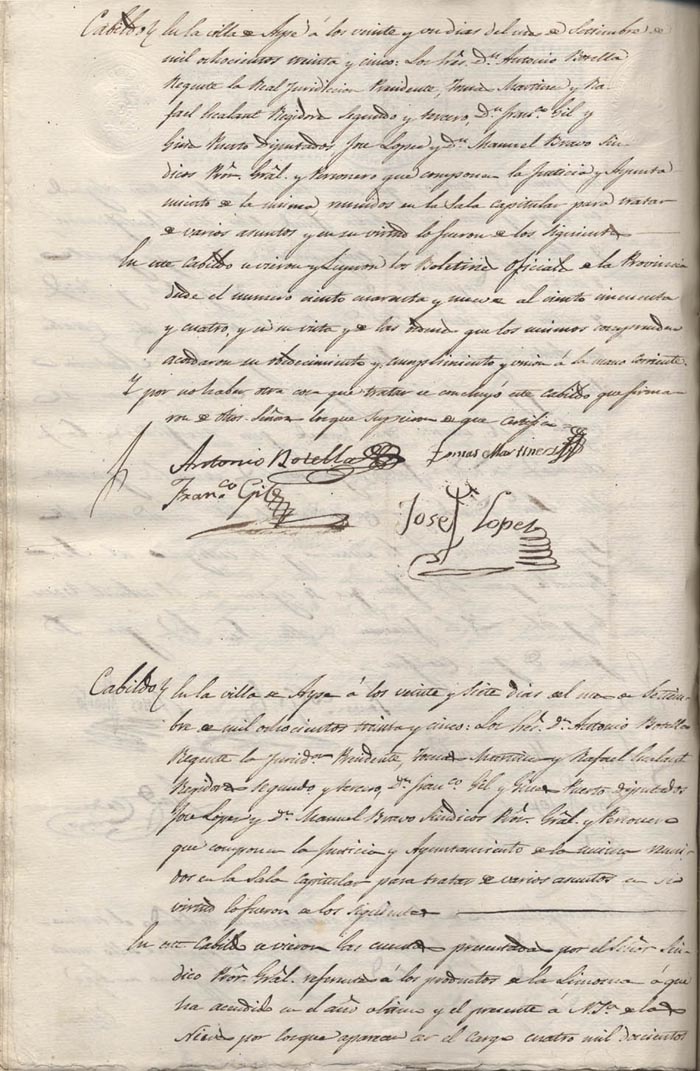 Cabildo En la villa de Aspe á los veinte y un dias del mes de Setiembre de
mil ochocientos treinta y cinco: Los Sres. Dn. Antonio Botella
Regente la Real Jurisdiccion Presidente, Tomas Martinez y Ra-
fael Escalant Regidores segundo y tercero, Dn. Franco. Gil y
Gines Puerto Diputados José Lopez y Dn. Manuel Bravo Sín-
dicos Prôr. Grâl. y Personero que componen la Justicia y Ayunta-
miento de la misma reunidos en la Sala capitular para tratar
de varios asuntos y en su virtud lo fueron de los siguientes
En este Cabildo se vieron y leyeron los Boletines oficiales de la Provincia
desde el numero ciento cuarenta y nueve al ciento cincuenta
y cuatro, y en su vista y de las ordenes que los mismos comprenden
acordaron su obedecimiento y cumplimiento y union á la mano corriente.
Y por no haber otra cosa que tratar se concluyó este Cabildo que firma-
ron de dhos. Señores los que supieron de que certifico
Antonio Botella Tomas Martinez
Franco. Gil
José Lopez
Cabildo En la villa de Aspe á los veinte y siete dias del mes de Setiem-
bre de mil ochocientos treinta y cinco: Los Sres. Dn. Antonio Botella
Regente la Jurisdon. Presidente, Tomas Martinez y Rafael Escalant
Regidores segundo y tercero, Dn. Franco. Gil y Gines Puerto diputados
José Lopez y Dn. Manuel Bravo Sindicos Prôr. Grâl. y Personero
que componen la Justicia y Ayuntamiento de la misma reuni-
dos en la Sala Capitular para tratar de varios asuntos en su
virtud lo fueron de los siguientes
En este Cabildo se vieron las cuentas presentadas por el Señor Sín-
dico Prôr. Grâl. referentes á los productos de la Limosna á que
ha acudido en el año ultimo y el presente á N. Sra. de las
Nieves por los que aparecen ser el cargo cuatro mil doscientos